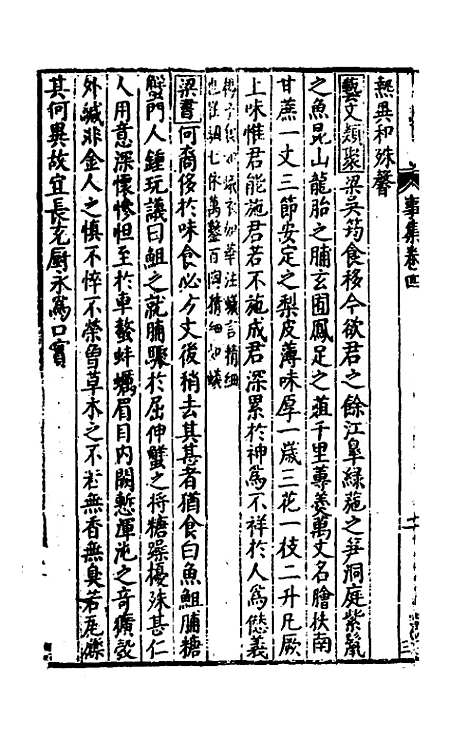 事集卷四
熱異和殊馨
藝文類聚梁吳筠食移今欲君之餘江皐綠葹之笋洞庭紫鬣
之魚昆山龍胎之脯玄圃鳳足之葅千里蓴羹萬丈名膾扶南
甘蔗一丈三節安定之梨皮薄味厚一歲三花一枝二升凡厥
上味惟君能施君若不施成君深累於神爲不祥於人爲愆義
注蟻言精細
百
精細如蟻
梁書何裔侈於味食必方丈後稍去其甚者猶食白魚䱇脯糖
蟹門人鍾玩議曰䱇之就脯驟於屈伸蟹之將糖躁擾殊甚仁
人用意深懷慘怛至於車螯蚌蠣眉目內闕慙渾沌之奇獷殼
外緘非金人之慎不悴不榮曾草木之不若無香無臭若瓦礫
其何異故宜長充厨永爲口實